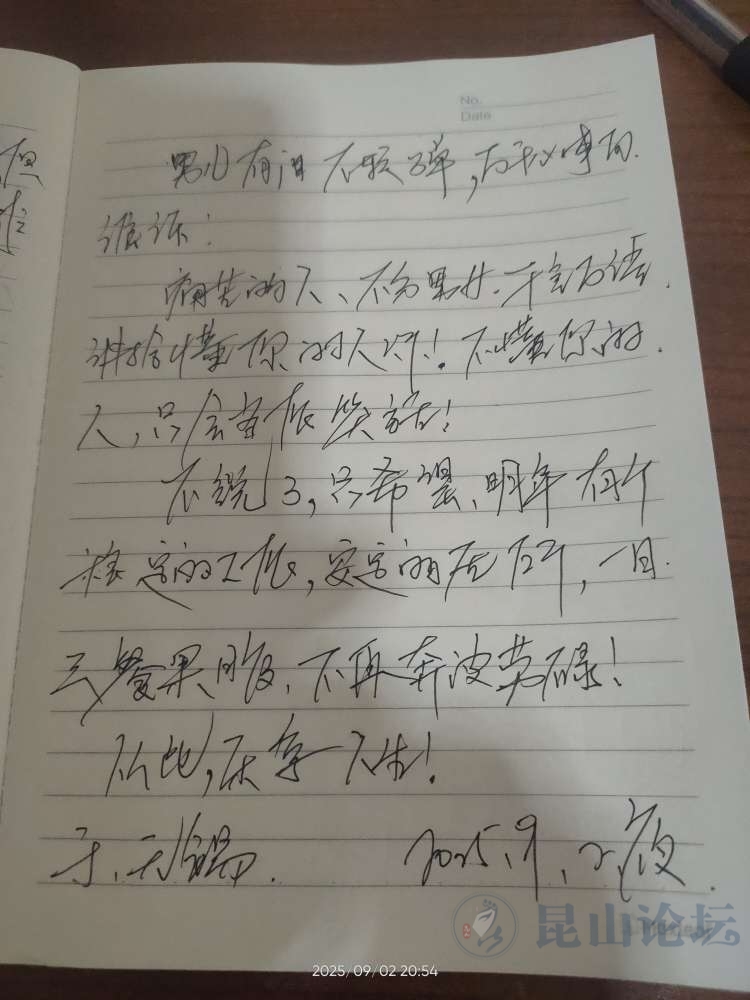 No.
Date
男儿有泪不轻弹,万千心事向
谁诉!
痛苦的人、不分男女.千言万语.
讲给懂你的人听!不懂你的.
人,只会当作笑话!
不说了,只希望、明年有个
稳定的工作,安定的居所,一日.
三餐果腹、不再奔波劳碌!
从此,庆幸人生!
于、无锡. 2025、9、2、夜.
昆山论坛
2025/09/02 20:54